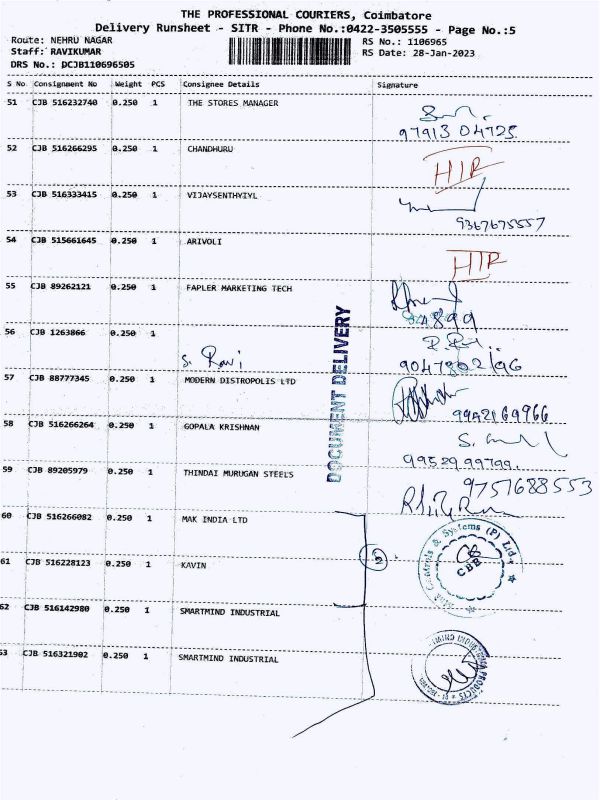 THE PROFESSIONAL COURIERS, Coimbatore
Delivery Runsheet - SITR - Phone No.:0422-3505555 - Page No.:5
Route: NEHRU NAGAR
Staff: RAVIKUMAR
DRS No.: DCJB110696505
RS No.: 1106965
RS Date: 28-Jan-2023
S No Consignment No Weight PCS Consignee Details Signature
51 CJB 516232740 0.250 1 THE STORES MANAGER
97913 04725
52 CJB 516266295 0.250 1 CHANDHURU
HIR
53 CJB 516333415 0.250 1 VIJAYSENTHYIYL
9367675557
54 CJB 515661645 0.250 1 ARIVOLI
HIR
55 CJB 89262121 0.250 1 FAPLER MARKETING TECH
4899
56 CJB 1263866 0.250 1
S. Ravi
57 CJB 88777345 0.250 1 MODERN DISTROPOLIS LTD
9942169966
58 CJB 516266264 0.250 1 GOPALA KRISHNAN
99529 99799.
59 CJB 89205979 0.250 1 THINDAI MURUGAN STEELS
9751688553
60 CJB 516266082 0.250 1 MAK INDIA LTD
61 CJB 516228123 0.250 1 KAVIN
62 CJB 516142980 0.250 1 SMARTMIND INDUSTRIAL
63 CJB 516321902 0.250 1 SMARTMIND INDUSTRIAL
DOCUMENT DELIVERY
Controls & Systems (P) Ltd.
CBE